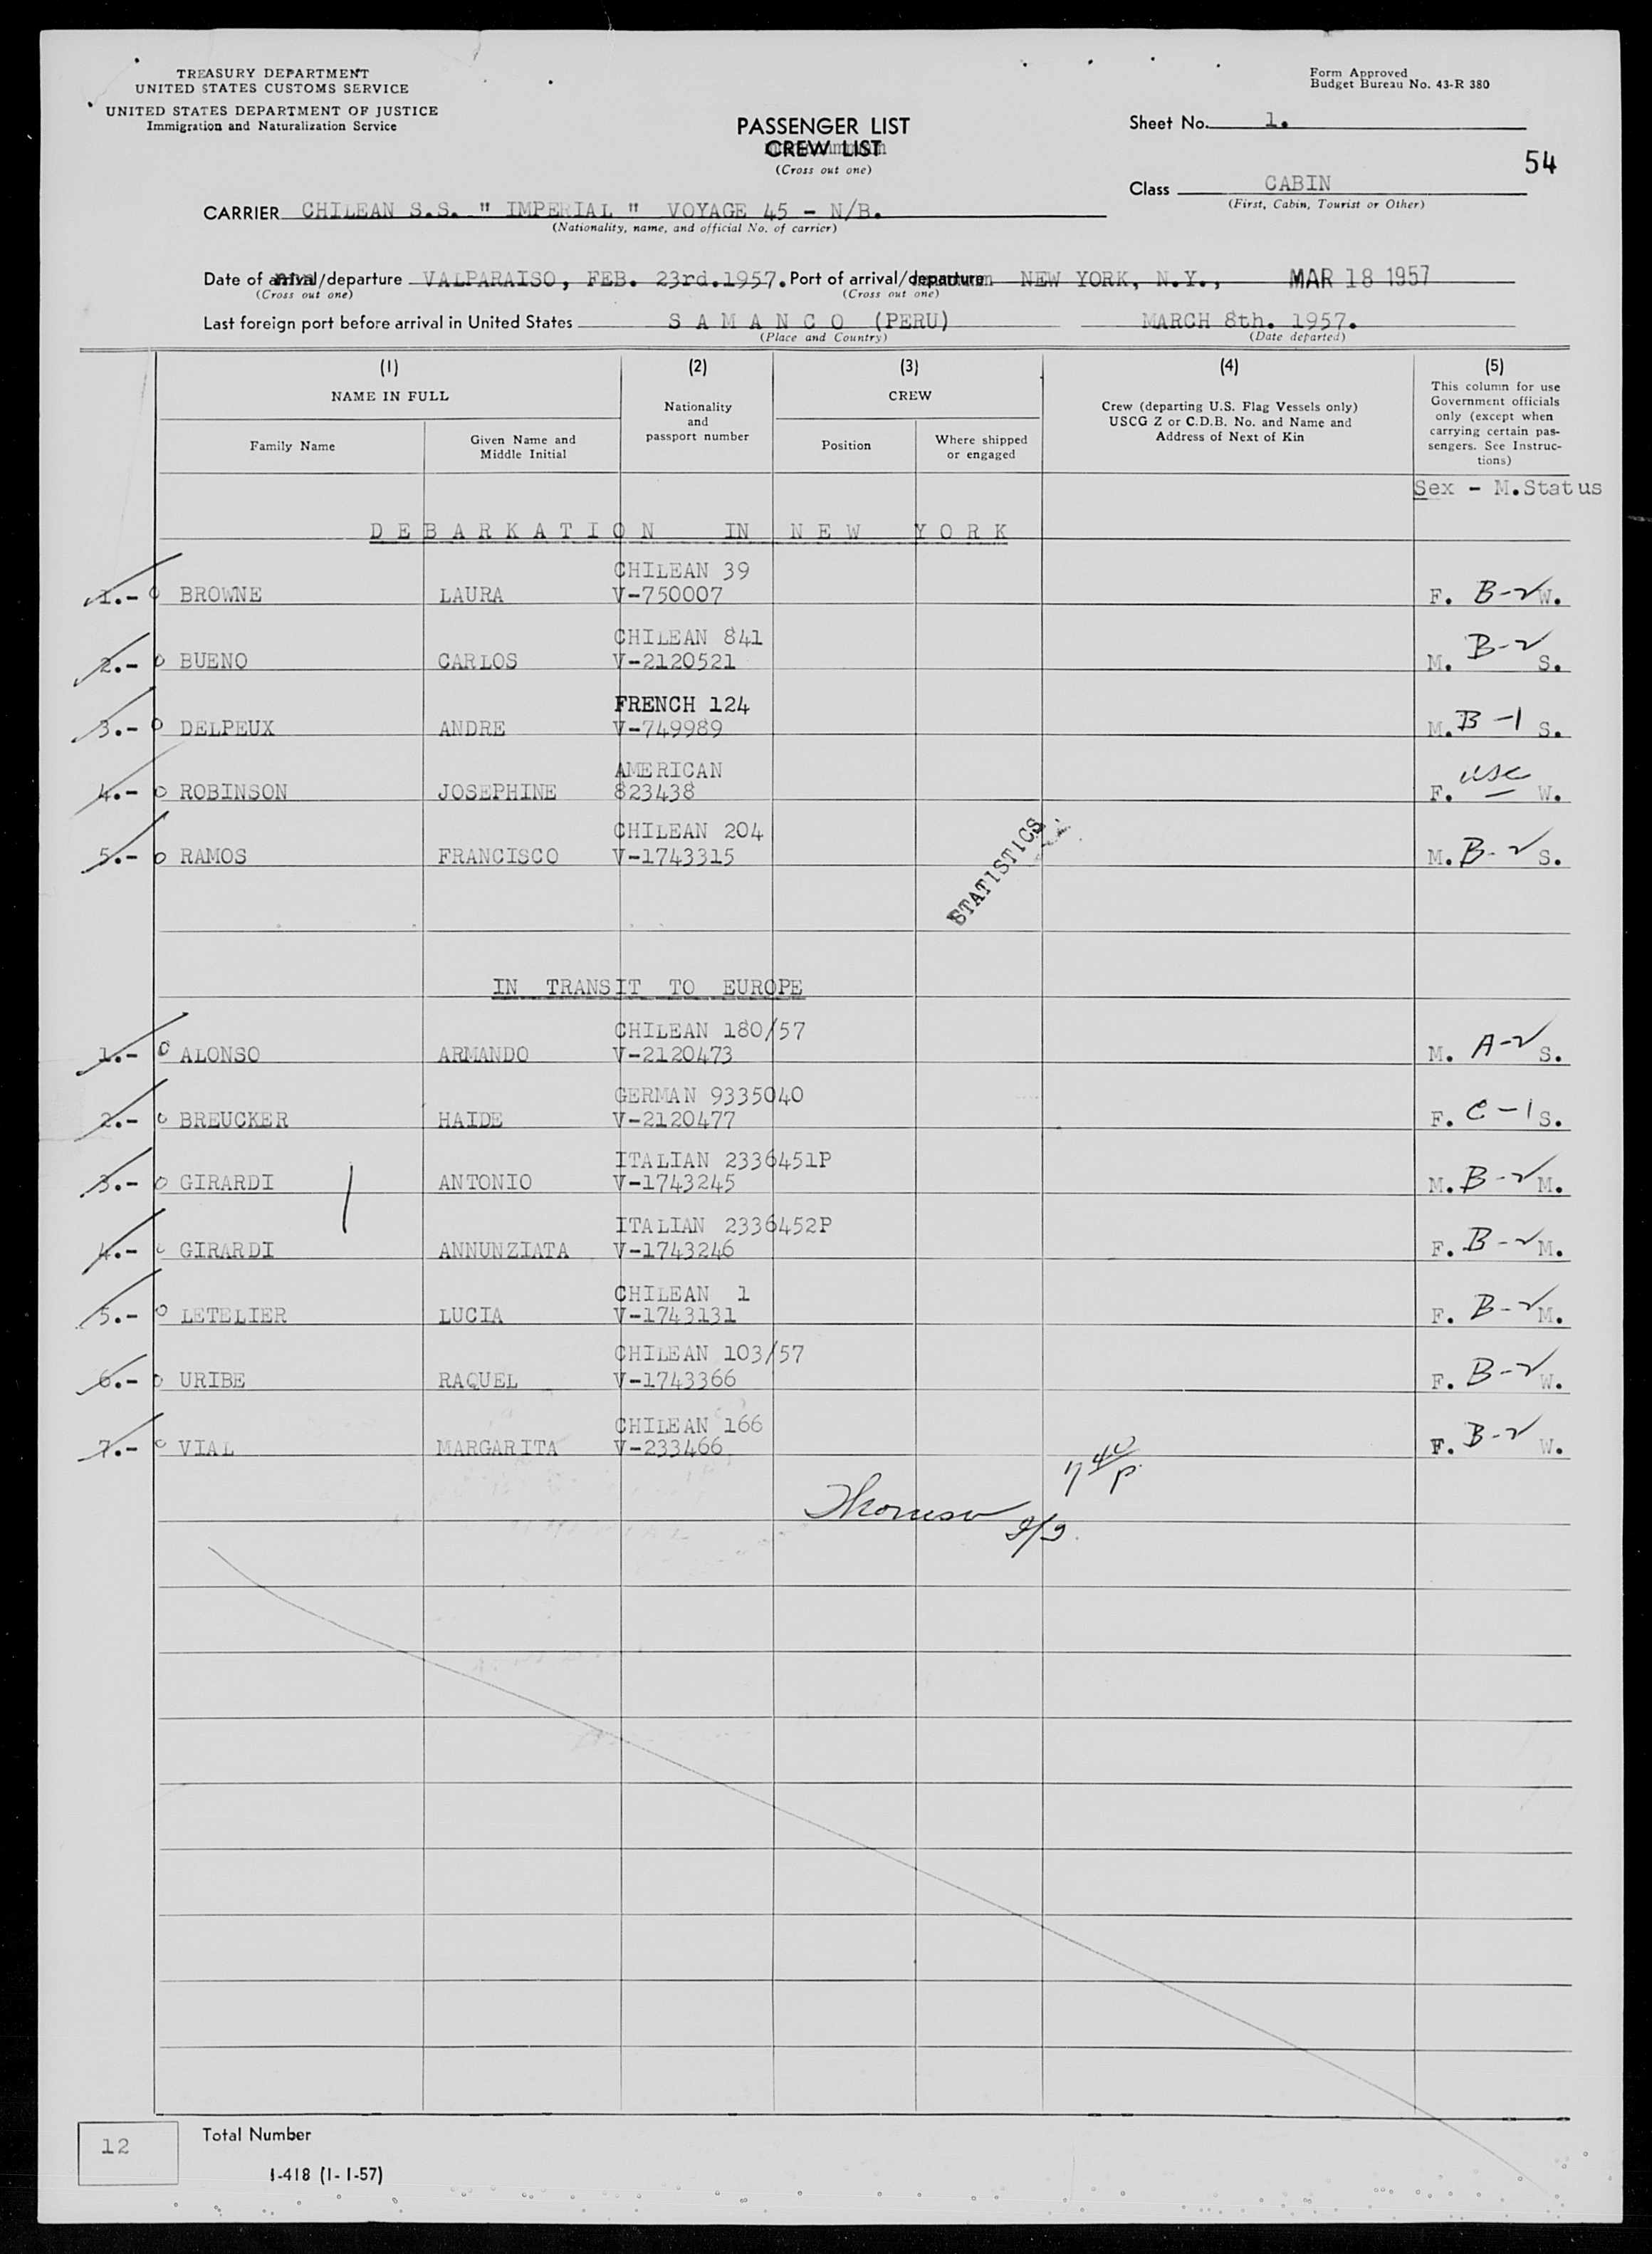 TREASURY DEPARTMENT
UNITED STATES CUSTOMS SERVICE
UNITED STATES DEPARTMENT OF JUSTICE
Immigration and Naturalization Service
Form Approved
Budget Bureau No. 43-R 380
PASSENGER LIST
CREW LIST
(Cross out one)
Sheet No. 1.
54
Class CABIN
(First, Cabin, Tourist or Other)
CARRIER CHILEAN S.S. " IMPERIAL " VOYAGE 45 - N/B.
(Nationality, name, and official No. of carrier)
Date of arrival/departure VALPARAISO, FEB. 23rd.1957. Port of arrival/departure NEW YORK, N.Y., MAR 18 1957
(Cross out one) (Cross out one)
Last foreign port before arrival in United States S A M A N C O (PERU) MARCH 8th. 1957.
(Place and Country) (Date departed)
(1) (2) (3) (4) (5)
NAME IN FULL
Family Name
Given Name and
Middle Initial
Nationality
and
passport number
CREW
Position
Where shipped
or engaged
Crew (departing U.S. Flag Vessels only)
USCG Z or C.D.B. No. and Name and
Address of Next of Kin
This column for use
Government officials
only (except when
carrying certain pas-
sengers. See Instruc-
tions)
Sex - M.Status
D E B A R K A T I O N IN N E W Y O R K
CHILEAN 39
1.- BROWNE LAURA V-750007 F. B-2 W.
CHILEAN 841
2.- BUENO CARLOS V-2120521 M. B-2 S.
FRENCH 124
3.- DELPEUX ANDRE V-749989 M. B-1 S.
AMERICAN
4.- ROBINSON JOSEPHINE 823438 F. USC W.
CHILEAN 204
5.- RAMOS FRANCISCO V-1743315 M. B-2 S.
STATISTICS
IN TRANSIT TO EUROPE
CHILEAN 180/57
1.- ALONSO ARMANDO V-2120473 M. A-2 S.
GERMAN 9335040
2.- BREUCKER HAIDE V-2120477 F. C-1 S.
ITALIAN 2336451P
3.- GIRARDI ANTONIO V-1743245 M. B-2 M.
ITALIAN 2336452P
4.- GIRARDI ANNUNZIATA V-1743246 F. B-2 M.
CHILEAN 1
5.- LETELIER LUCIA V-1743131 F. B-2 M.
CHILEAN 103/57
6.- URIBE RAQUEL V-1743366 F. B-2 W.
CHILEAN 166
7.- VIAL MARGARITA V-233466 F. B-2 W.
12
Total Number
I-418 (1-1-57)